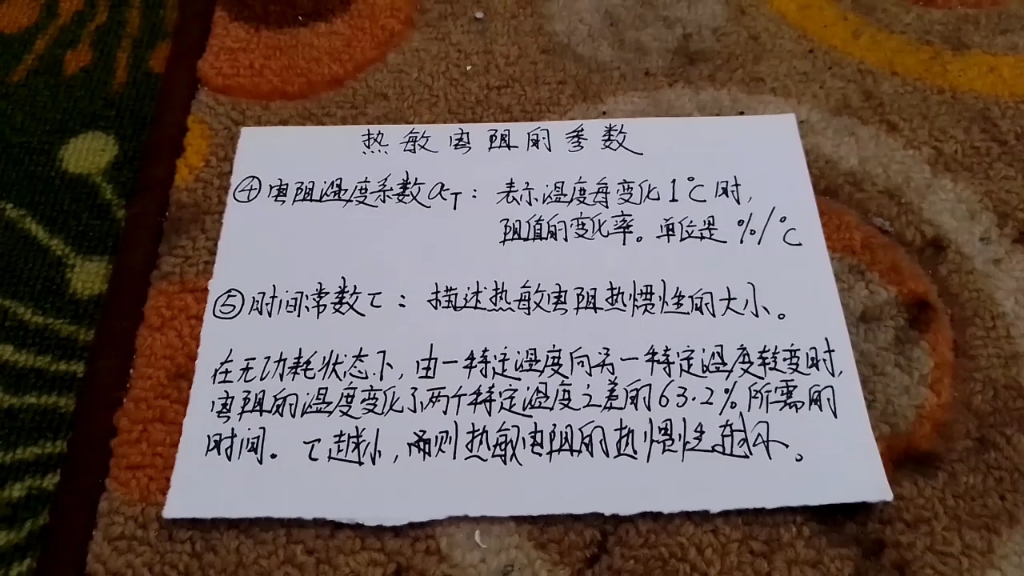 热敏电阻的参数
④电阻温度系数αT：表示温度每变化1℃时，
阻值的变化率。单位是%/℃
⑤时间常数τ：描述热敏电阻热惯性的大小。
在无功耗状态下，由一特定温度向另一特定温度转变时，
电阻的温度变化了两个特定温度之差的63.2%所需的
时间。τ越小，则热敏电阻的热惯性越小。